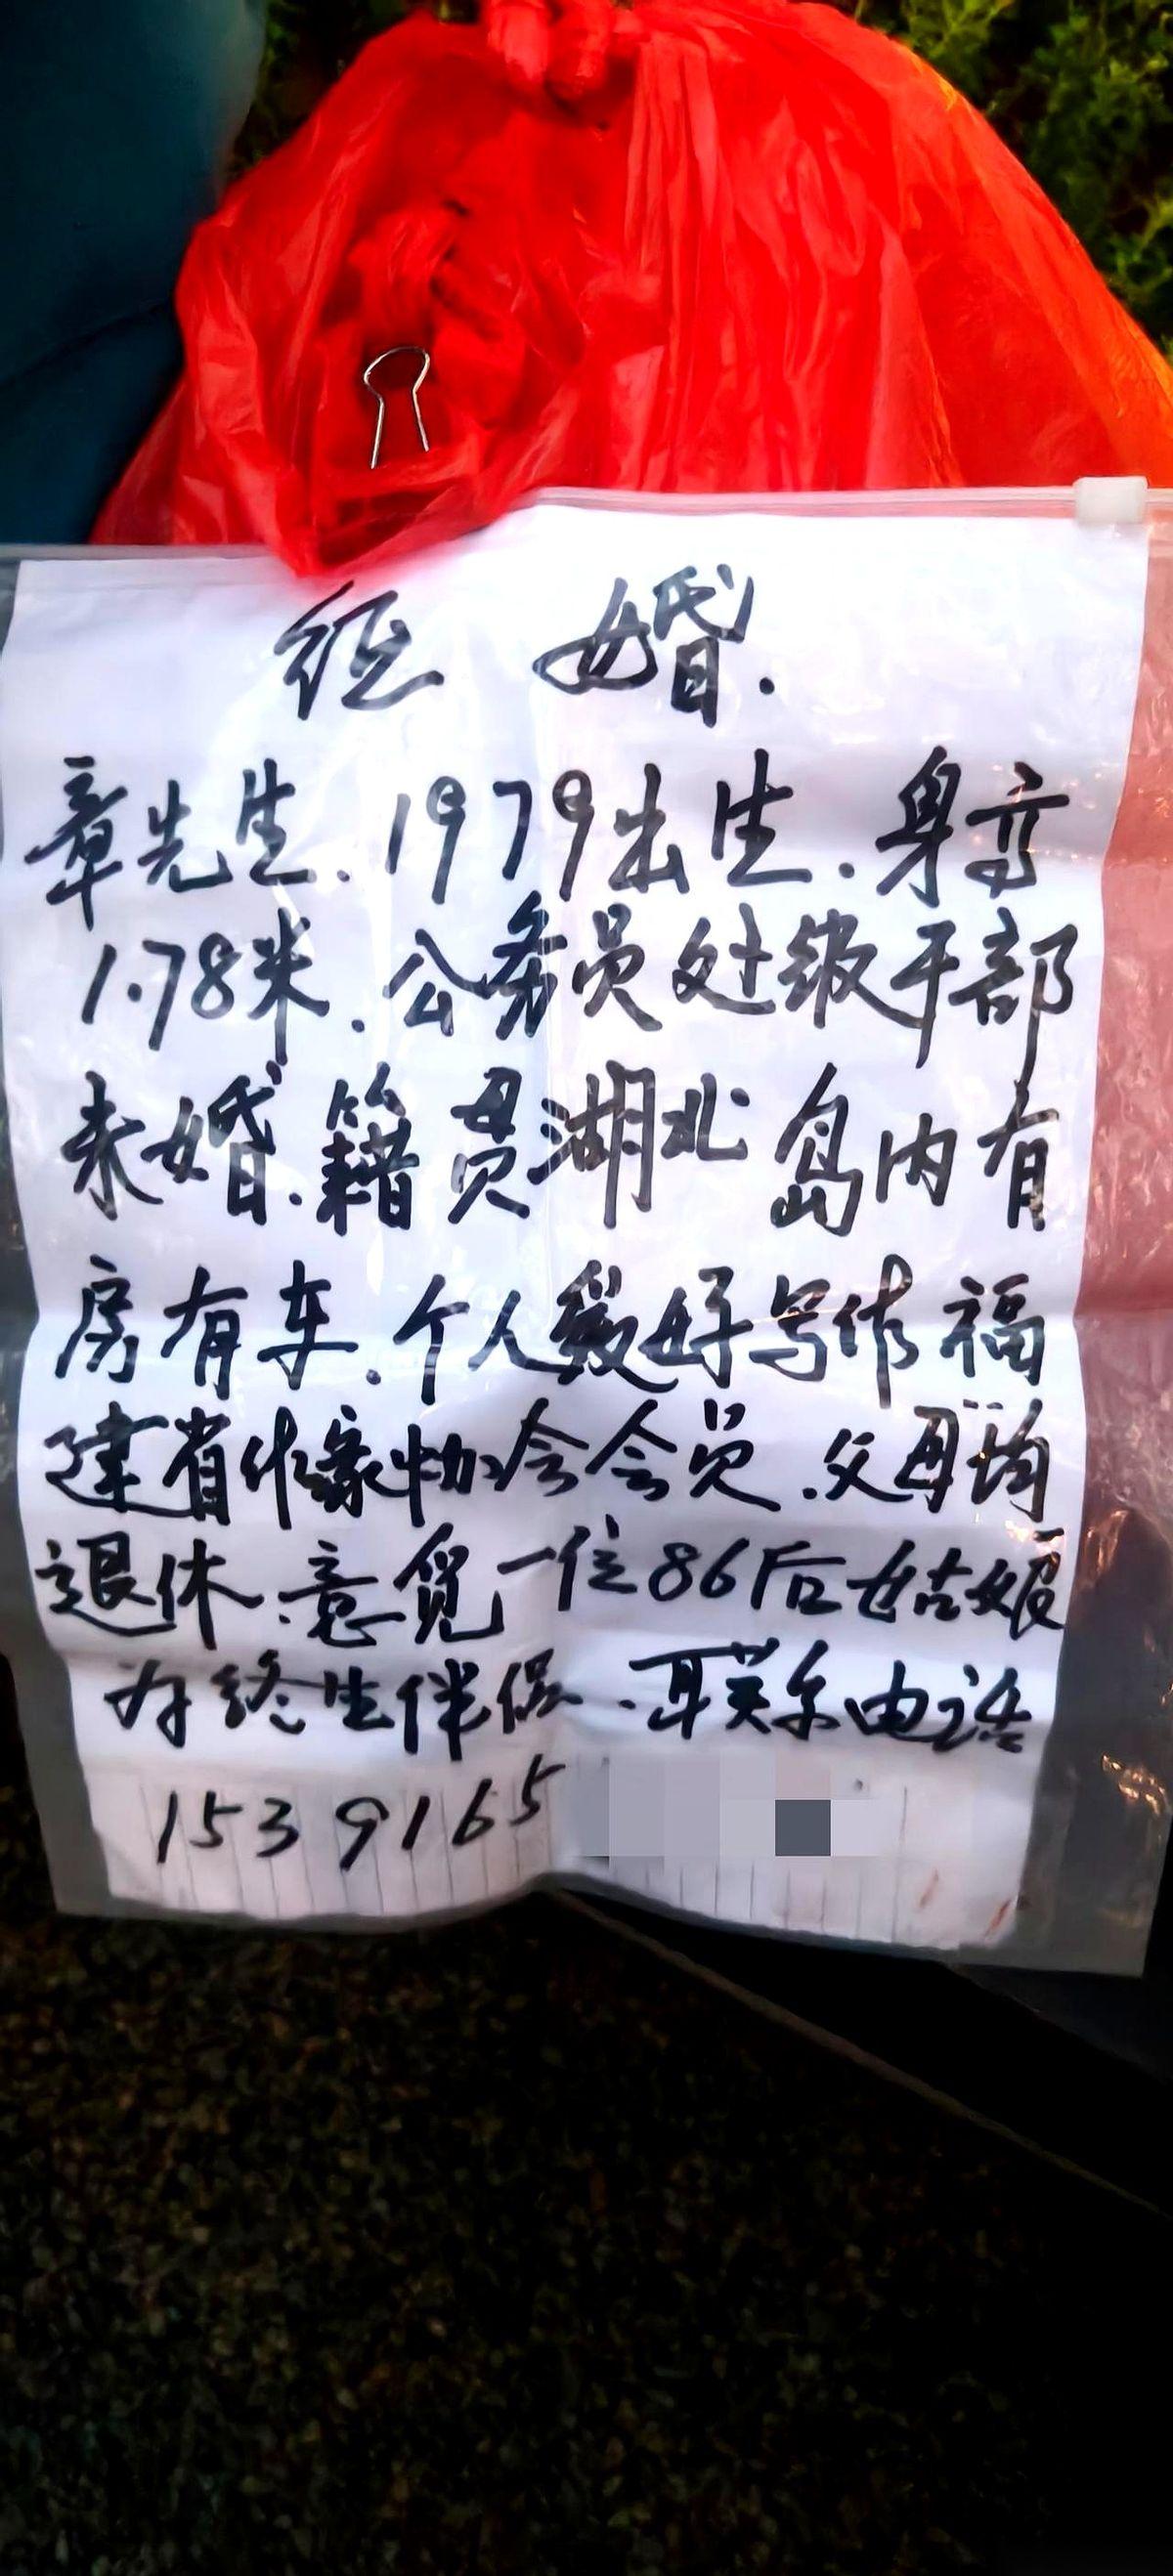 征 婚.
章先生.1979出生.身高
1.78米.公务员处级干部
未婚.籍贯湖北 岛内有
房有车.个人爱好写作 福
建省作家协会会员.父母均
退休.意觅一位86后姑娘
为终生伴侣.联系电话
1539165